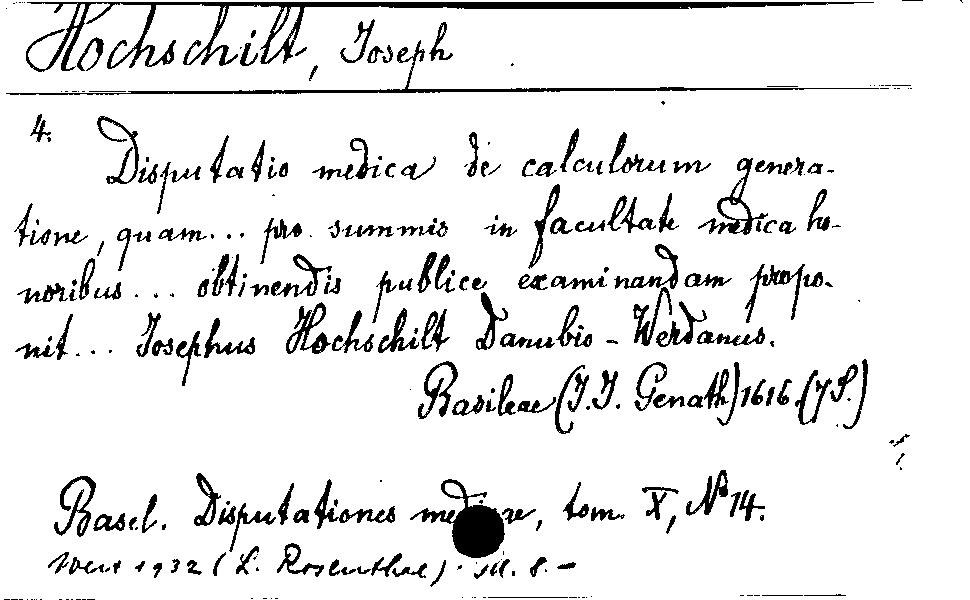 Hochschilt, Joseph
4.
Disputatio medica de calculorum genera-
tione, quam... pro summis in facultate medica ho-
noribus... obtinendis publice examinandam propo-
nit... Josephus Hochschilt Danubio-Werdanus.
Basileae (J.J. Genath) 1616. (7 S.)
Basel. Disputationes medicae, tom. X, No 14.
1932 (L. Rosenthal). M. 8.-